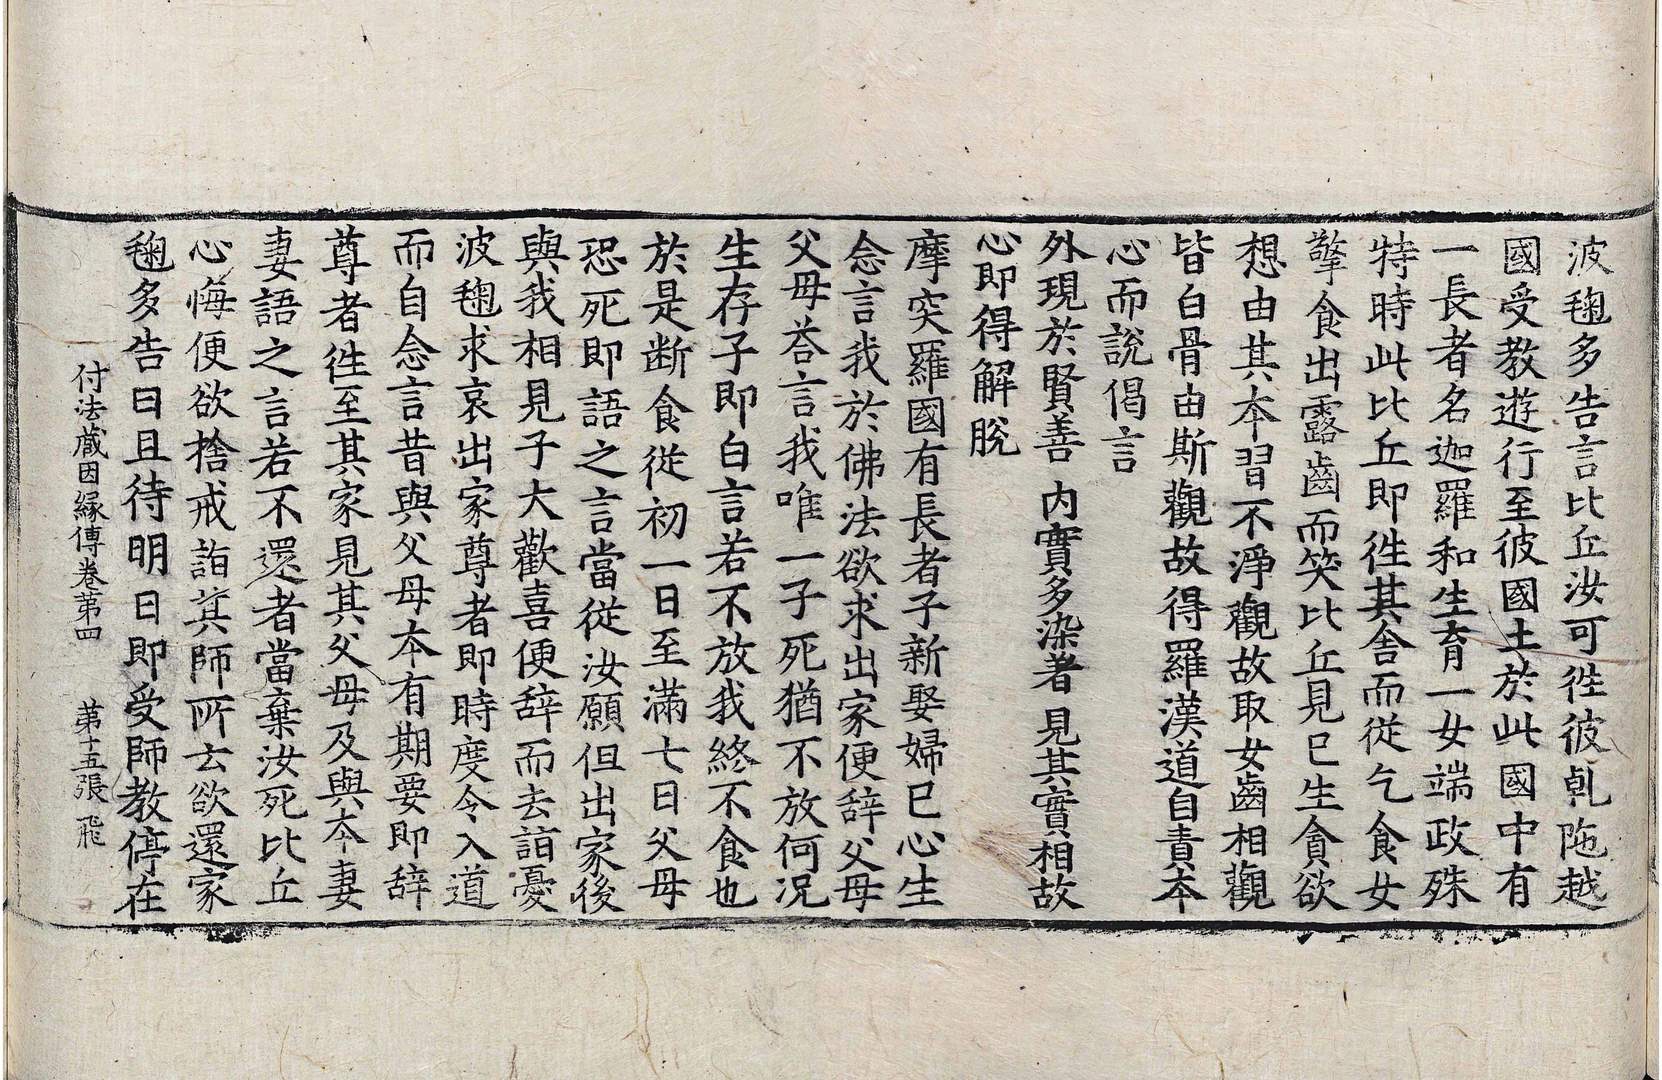 波毱多告言比丘汝可徃彼乹陁越
國受教遊行至彼國土於此國中有
一長者名迦羅和生育一女端政殊
特時此比丘即徃其舍而從乞食女
擎食出露齒而笑比丘見已生貪欲
想由其本習不淨觀故取女齒相觀
皆白骨由斯觀故得羅漢道自責本
心而說偈言
外現於賢善 內實多染著 見其實相故
心即得解脫
摩突羅國有長者子新娶婦已心生
念言我於佛法欲求出家便辞父母
父母荅言我唯一子死猶不放何況
生存子即白言若不放我終不食也
於是断食從初一日至滿七日父母
恐死即語之言當從汝願但出家後
與我相見子大歡喜便辞而去詣憂
波毱求哀出家尊者即時度令入道
而自念言昔與父母本有期要即辞
尊者徃至其家見其父母及與本妻
妻語之言若不還者當棄汝死比丘
心悔便欲捨戒詣其師所云欲還家
毱多告曰且待明日即受師教停在
付法藏因緣傳卷第四 第十五張 飛